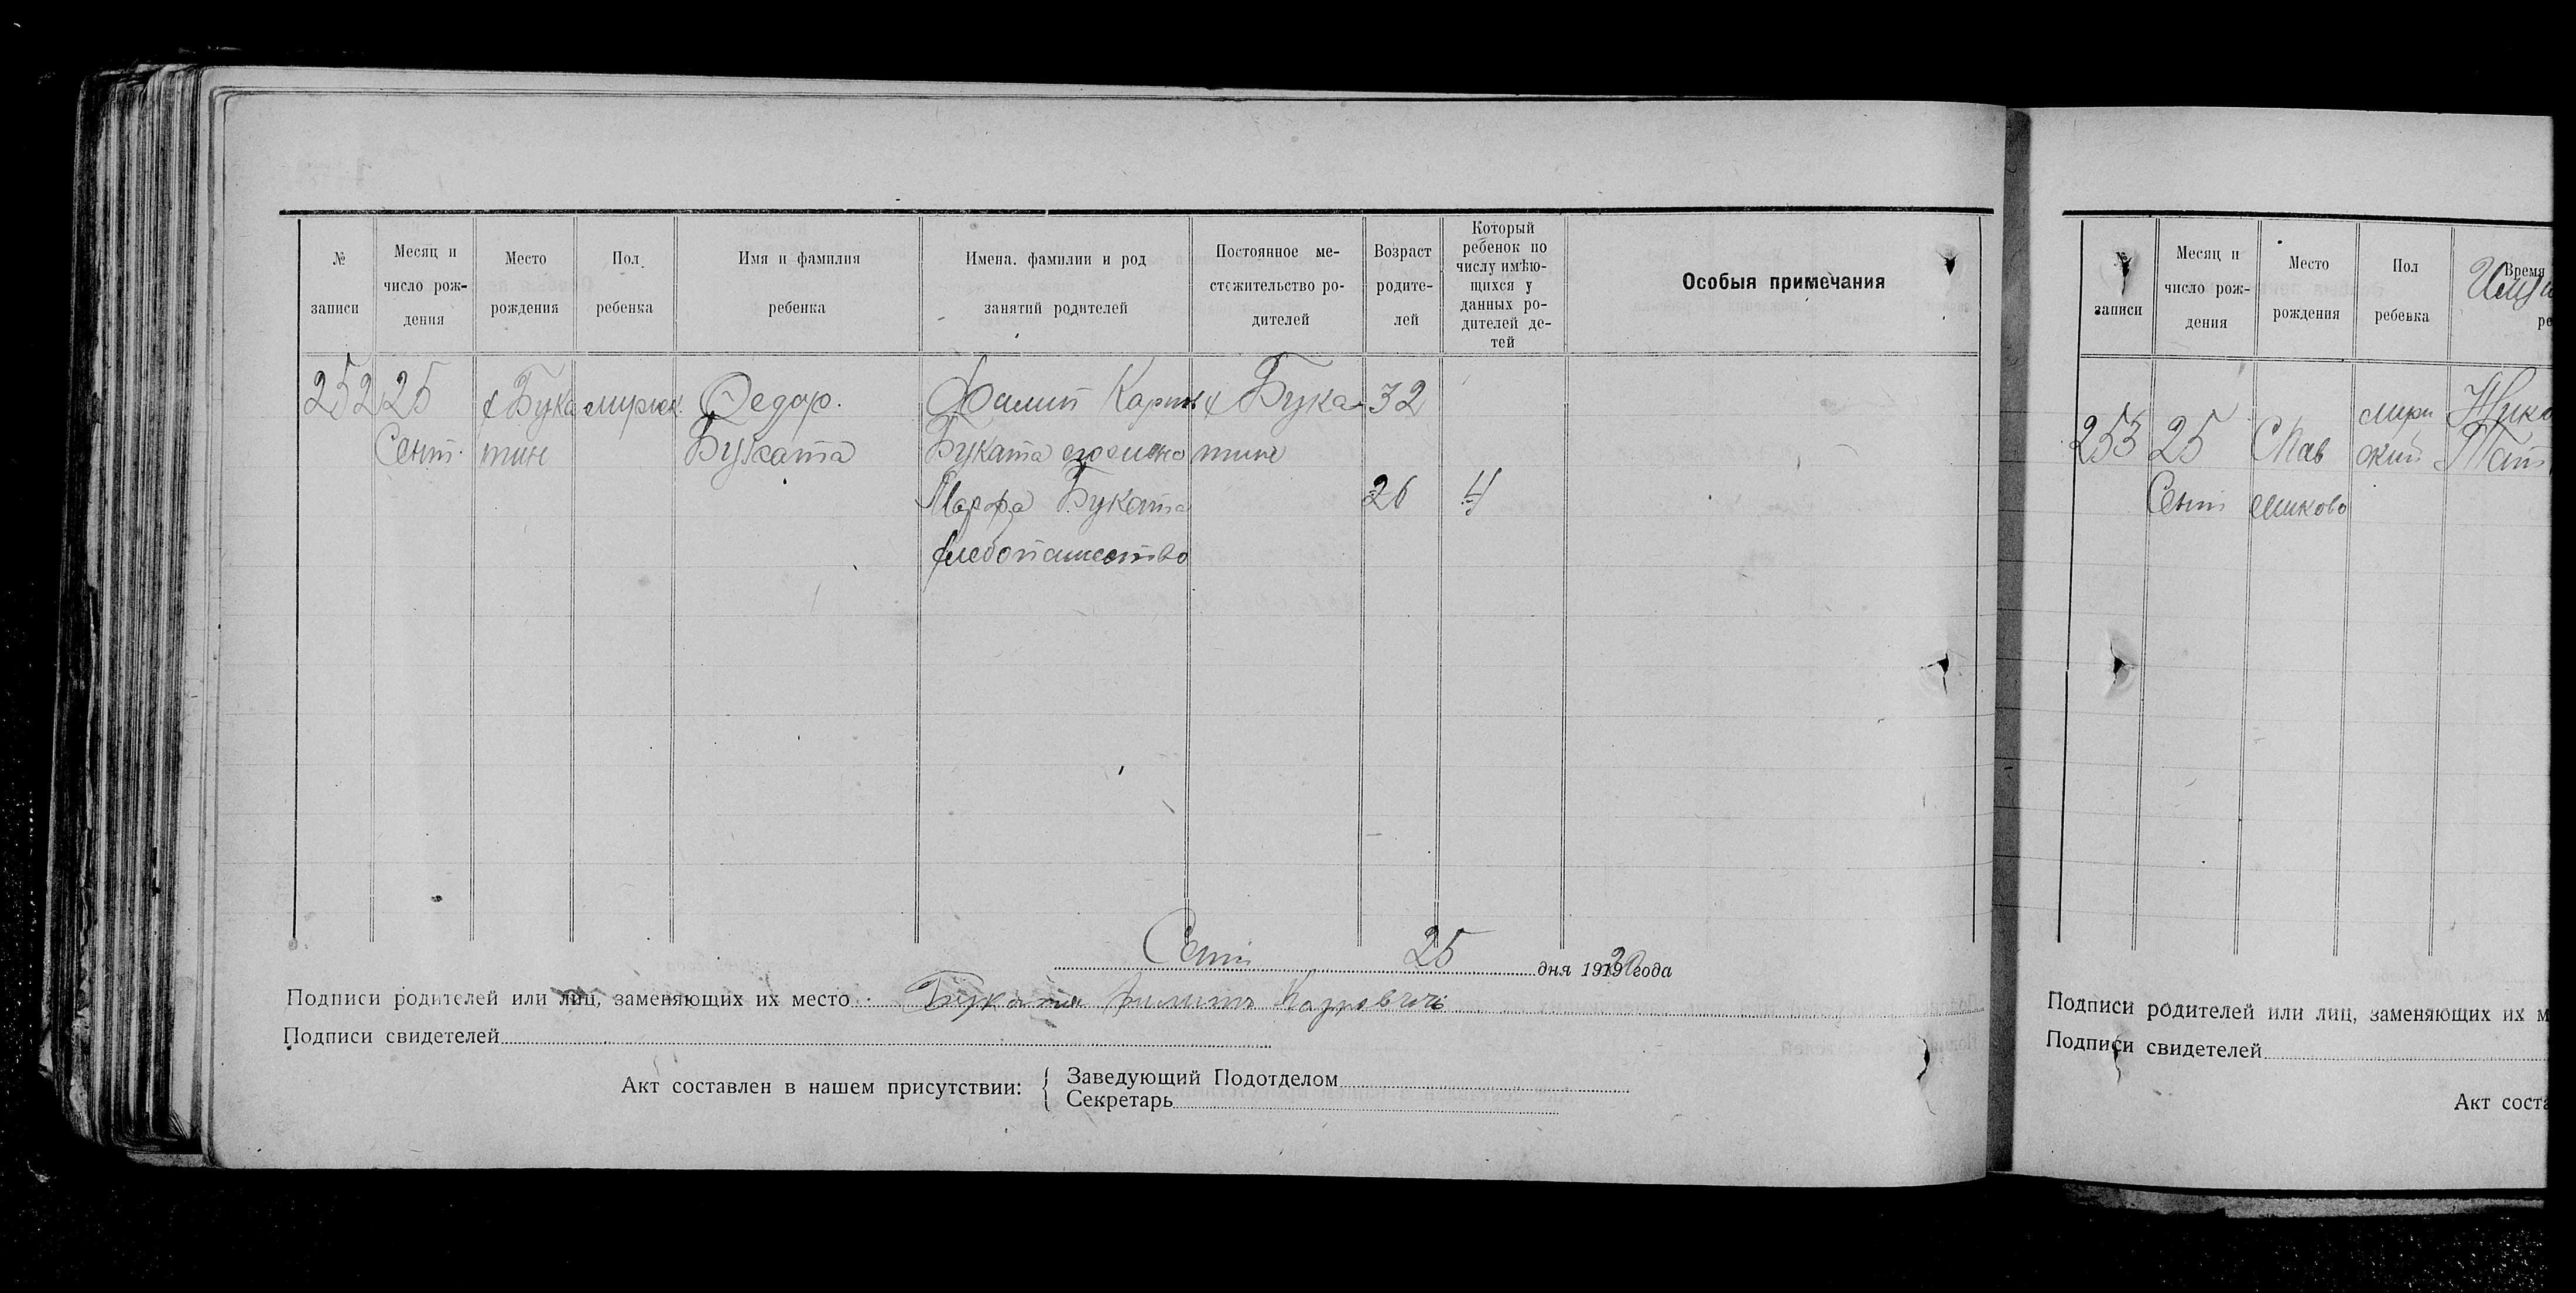 № записи
Месяц и число рож-дения
Место рождения
Пол ребенка
Имя и фамилия ребенка
Имена, фамилии и род занятий родителей
Постоянное ме-стожительство ро-дителей
Возраст родите-лей
Который ребенок по числу имѣю-щихся у данных ро-дителей де-тей
Особыя примечания
252 25 с Бука мужск. Федор. Филип Карпов с Бука- 32
Сент. тине Буката Буката тине
Марфа Буката 26 4
хлебопашество
Сент 25 дня 1920 года
Подписи родителей или лиц, заменяющих их место Буката Филипъ Карповичъ
Подписи свидетелей
Акт составлен в нашем присутствии:
Заведующий Подотделом
Секретарь
№ записи
Месяц и число рож-дения
Место рождения
Пол ребенка
Время
253 25
Сент
Подписи родителей или лиц, заменяющих их м
Подписи свидетелей
Акт соста